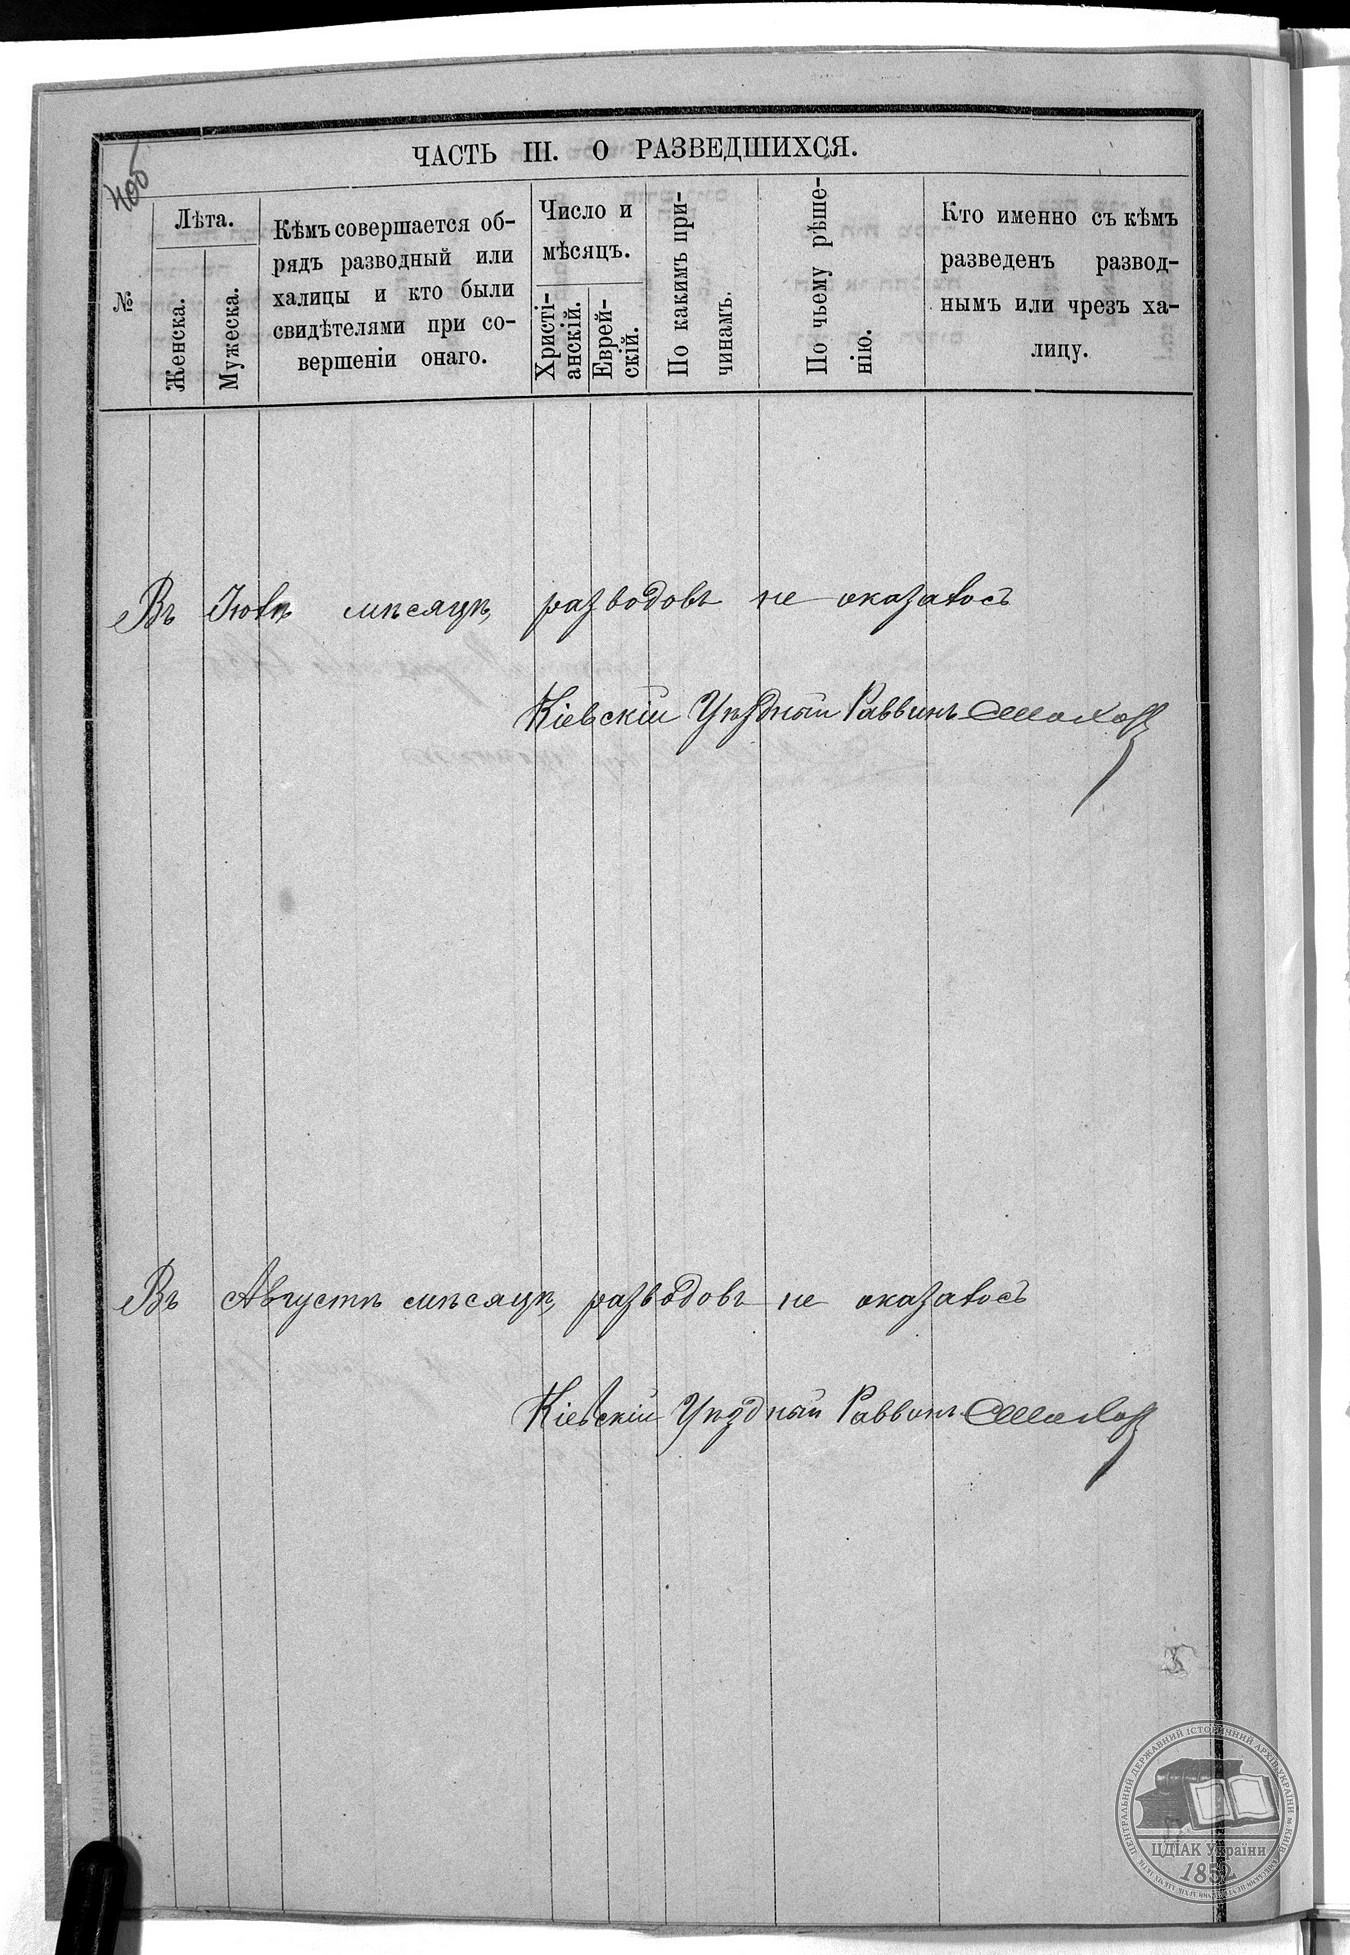 405
ЧАСТЬ III. О РАЗВЕДШИХСЯ.
№
Лѣта.
Женска.
Мужеска.
Кѣмъ совершается об-
рядъ разводный или
халицы и кто были
свидѣтелями при со-
вершеніи онаго.
Число и
мѣсяцъ.
Христі-
анскій.
Еврей-
скій.
По какимъ при-
чинамъ.
По чьему рѣше-
нію.
Кто именно съ кѣмъ
разведенъ развод-
нымъ или чрезъ ха-
лицу.
Въ Іюлѣ мѣсяцѣ, разводовъ не оказалось
Кіевскій Уѣздный Раввинъ
Въ Августѣ мѣсяцѣ, разводовъ не оказалось
Кіевскій Уѣздный Раввинъ
ЦЕНТРАЛЬНИЙ ДЕРЖАВНИЙ ІСТОРИЧНИЙ АРХІВ УКРАЇНИ м.КИЇВ
ЦДІАК України
1852